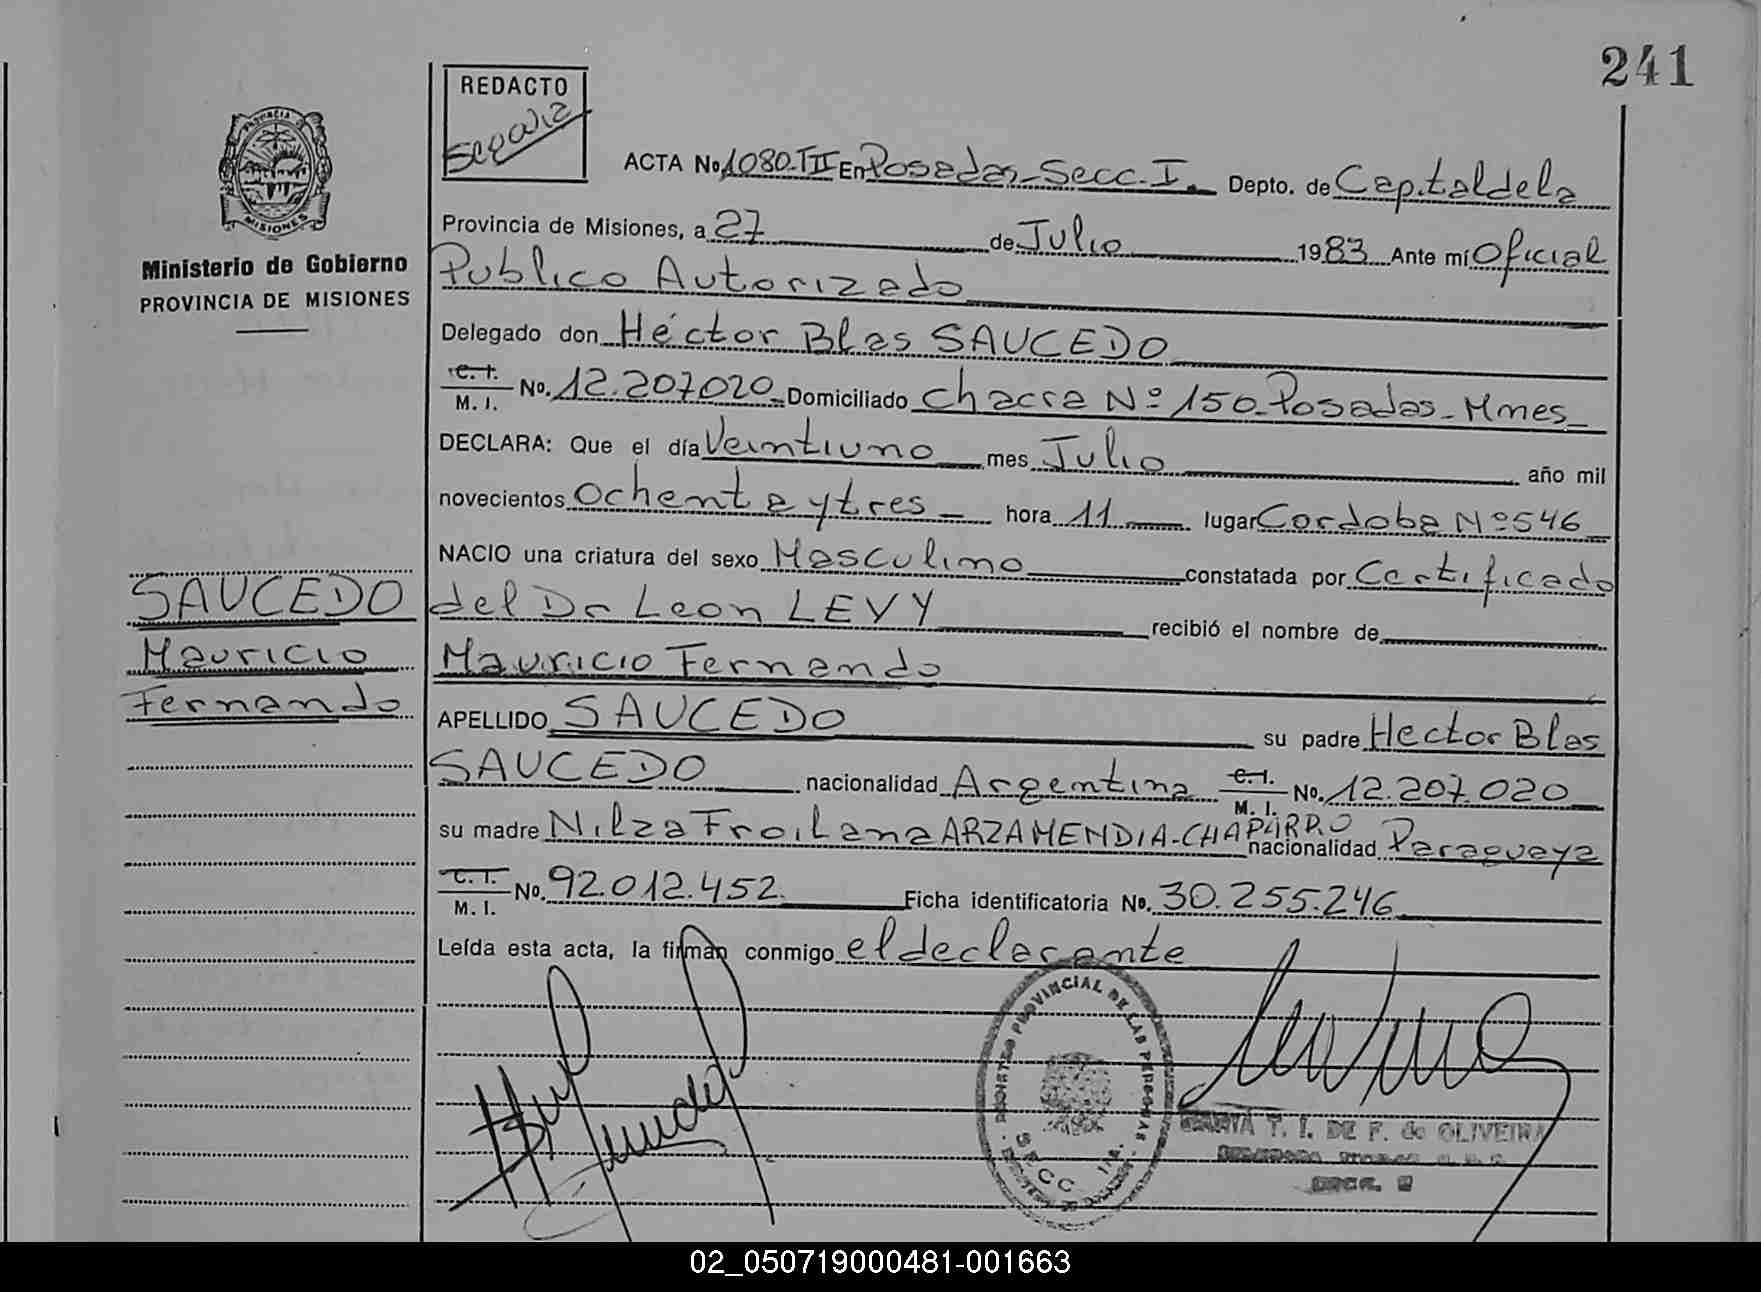 241
REDACTO
PROVINCIA
MISIONES
Ministerio de Gobierno
PROVINCIA DE MISIONES
ACTA No 1080-TII En Posadas-Secc. I. Depto. de Capital de la
Provincia de Misiones, a 27 de Julio 1983 Ante mí Oficial
Publico Autorizado
Delegado don Héctor Blas SAUCEDO
C. I. M. I. No. 12.207020 Domiciliado Chacra Nº 150-Posadas-Mnes
DECLARA: Que el día Veintiuno mes Julio año mil
novecientos Ochenta y tres hora 11 lugar Cordoba Nº 546
NACIO una criatura del sexo Masculino constatada por Certificado
del Dr Leon LEVY recibió el nombre de
Mauricio Fernando
APELLIDO SAUCEDO su padre Hector Blas
SAUCEDO nacionalidad Argentina C. I. M. I. No. 12.207.020
su madre Nilza Froilana ARZAMENDIA-CHAPARRO nacionalidad Paraguaya
C. I. M. I. No. 92.012.452 Ficha identificatoria No. 30.255.246
Leída esta acta, la firman conmigo el declarante
SAUCEDO
Mauricio
Fernando
REGISTRO PROVINCIAL DE LAS PERSONAS
SECC 1ra.
T. I. DE F. de OLIVEIRA
02_050719000481-001663